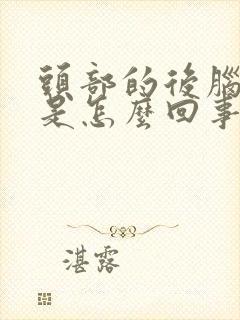 頭部的後腦
是怎麼回事
湛露